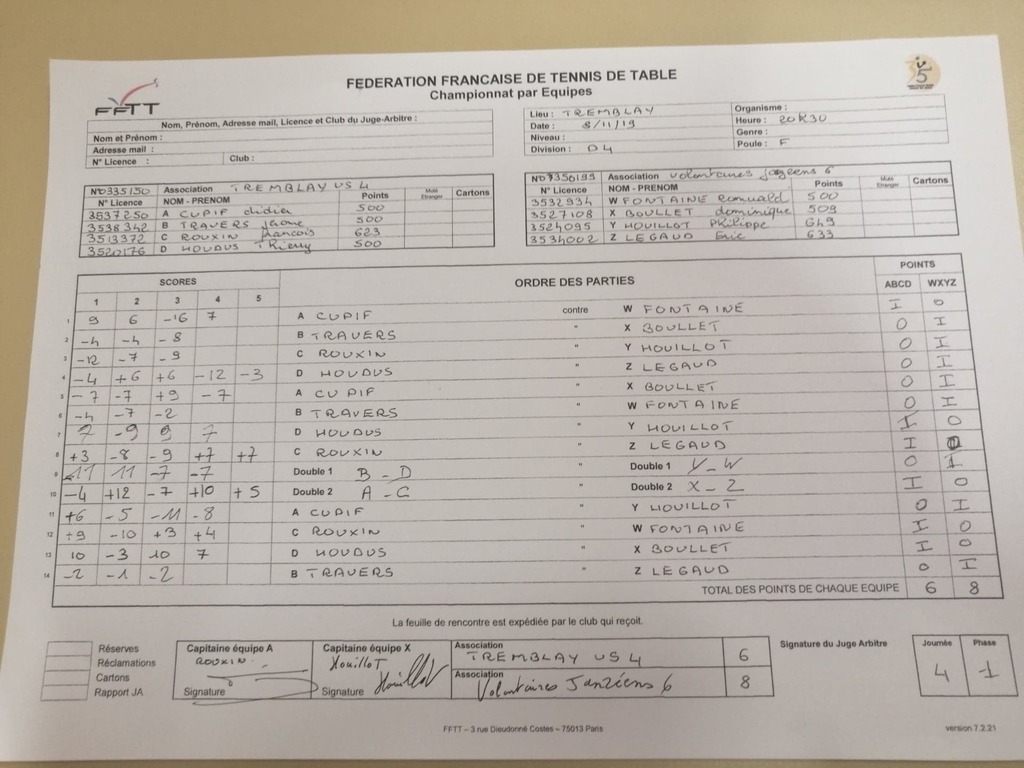 FEDERATION FRANCAISE DE TENNIS DE TABLE
Championnat par Equipes
FFTT
Nom, Prénom, Adresse mail, Licence et Club du Juge-Arbitre :
Nom et Prénom :
Adresse mail :
N° Licence : Club :
Lieu : TREMBLAY Organisme :
Date : 8/11/19 Heure : 20H30
Niveau : Genre :
Division : D4 Poule : F
N°0335150 Association TREMBLAY US 4
N° Licence NOM - PRENOM Points Muté Etranger Cartons
3537250 A CUPIF didier 500
3538342 B TRAVERS 500
3513372 C ROUXIN francois 623
3520176 D HOUDUS Thierry 500
Association Volontaires janzéens 6
N° Licence NOM - PRENOM Points Muté Etranger Cartons
3532934 W FONTAINE romuald 500
3527108 X BOULLET dominique 509
3524095 Y HOUILLOT Philippe 649
3534002 Z LEGAUD Eric 633
SCORES ORDRE DES PARTIES POINTS
1 2 3 4 5 ABCD WXYZ
1 9 6 -16 7 A CUPIF contre W FONTAINE I 0
2 -4 -4 -8 B TRAVERS " X BOULLET 0 I
3 -12 -7 -9 C ROUXIN " Y HOUILLOT 0 I
4 -4 +6 +6 -12 -3 D HOUDUS " Z LEGAUD 0 I
5 -7 -7 +9 -7 A CUPIF " X BOULLET 0 I
6 -4 -7 -2 B TRAVERS " W FONTAINE 0 I
7 7 -9 9 7 D HOUDUS " Y HOUILLOT I 0
8 +3 -8 -9 +7 +7 C ROUXIN " Z LEGAUD I 0
9 -11 11 -7 -7 Double 1 B-D " Double 1 Y-W 0 1
10 -4 +12 -7 +10 +5 Double 2 A-C " Double 2 X-Z I 0
11 +6 -5 -11 -8 A CUPIF " Y HOUILLOT 0 I
12 +9 -10 +3 +4 C ROUXIN " W FONTAINE I 0
13 10 -3 10 7 D HOUDUS " X BOULLET I 0
14 -2 -1 -2 B TRAVERS " Z LEGAUD 0 I
TOTAL DES POINTS DE CHAQUE EQUIPE 6 8
La feuille de rencontre est expédiée par le club qui reçoit.
Réserves
Réclamations
Cartons
Rapport JA
Capitaine équipe A
ROUXIN
Signature
Capitaine équipe X
Houillot
Signature Houillot
Association
TREMBLAY US 4 6
Association
Volontaires Janzéens 6 8
Signature du Juge Arbitre
Journée Phase
4 1
FFTT – 3 rue Dieudonné Costes – 75013 Paris
version 7.2.21